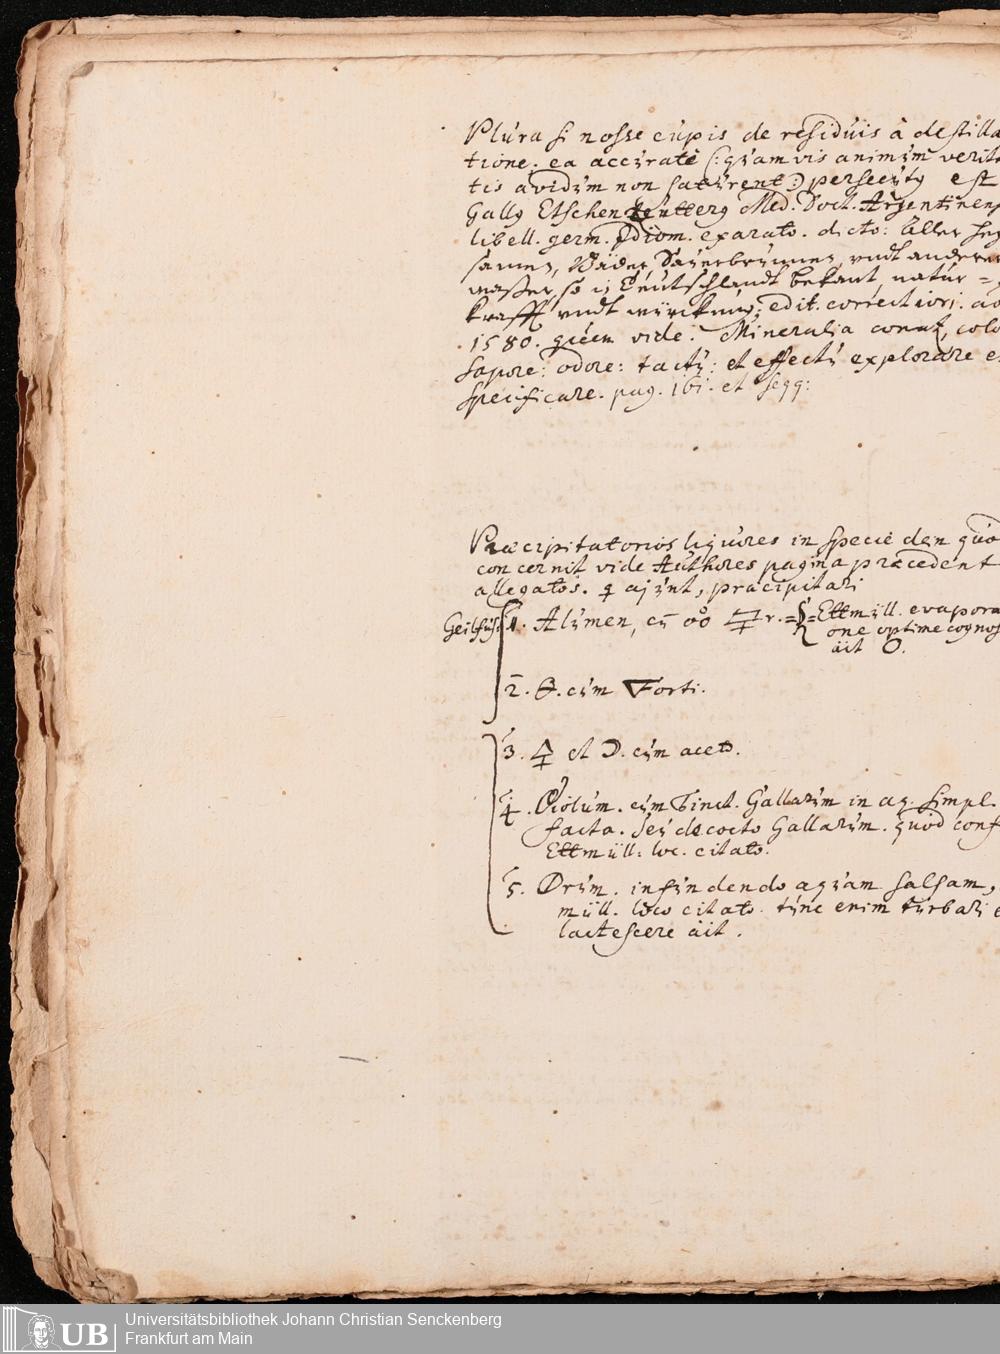 Plura si nosse cupis de residuis à destilla
tione. ea accuratè (: quamvis animum verita
tis avidum non saturent :) persecutus est
Gallus Etschenreutterus Med. Doct. Argentinens
libell. germ. Idiom. exarato. dicto: Aller Heyl
samen, Bäder Sauerbrunnen, undt anderer
wasser, so in Deutschlandt bekant, natur =
krafft undt würckung; edit. correctiori. ao
1580. quem vide: Mineralia conat, colo
sapore: odore: tactu: et effectu explorare e
specificare. pag. 161. et seqq:
Præcipitatorios liquores in specie den quo
concernit vide Authores pagina præcedent
allegatos. ajunt, præcipitari
Geilfus. 1. Alumen, cum r. = Ettmüll. evapora
one optime cognos
ait
2. cum Forti.
3. et cum aceto.
4. Violum. cum Tinct. Gallarum in aq. simpl.
facta. seu decocto Gallarum. quod conf
Ettmüll: loc. citato.
5. infundendo aquam salsam,
müll. loco citato. tunc enim turbari e
lactescere ait.
Universitätsbibliothek Johann Christian Senckenberg
Frankfurt am Main
UB